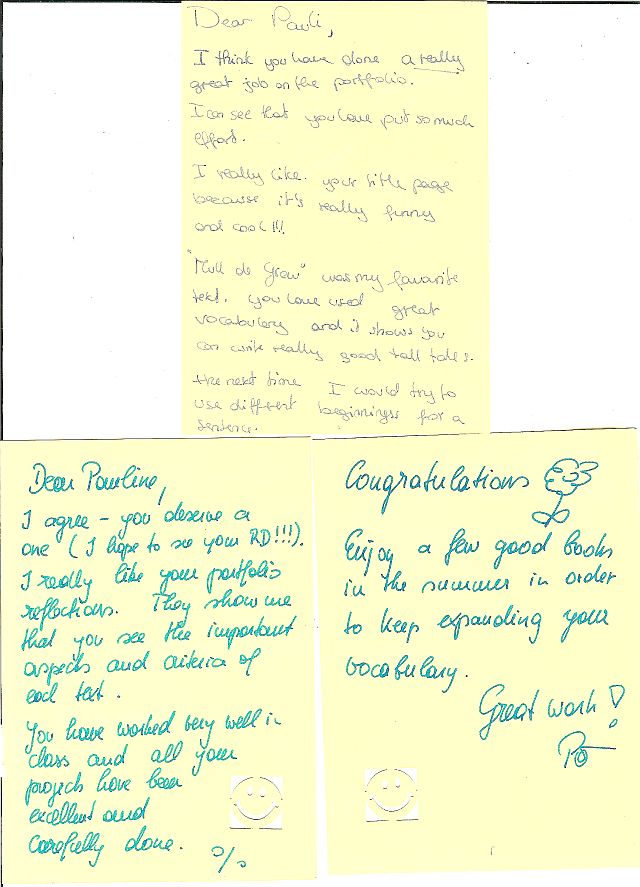 Dear Pauli,
I think you have done a really
great job on the portfolio.
I can see that you have put so much
effort.
I really like your title page
because it's really funny
and cool!!!
"Mull de Graw" was my favorite
text. You have used great
vocabulary and it shows you
can write really good tall tales.
the next time I would try to
use different beginnings for a
sentence.
Dear Pauline,
I agree - you deserve a
one (I hope to see your RD!!!).
I really like your portfolio
reflections. They show me
that you see the important
aspects and criteria of
each text.
You have worked very well in
class and all your
projects have been
excellent and
carefully done.
Congratulations
Enjoy a few good books
in the summer in order
to keep expanding your
vocabulary.
Great work!